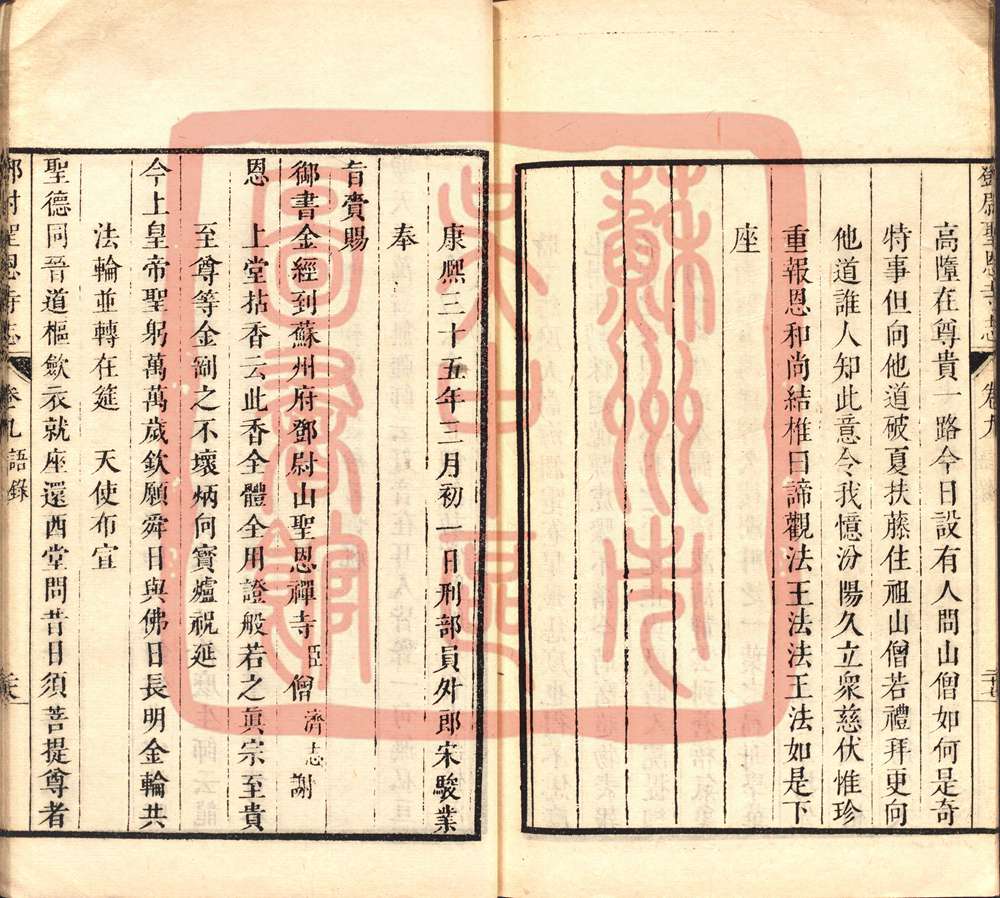 鄧尉聖恩寺志 卷九
高隨在尊貴一路今日設有人問山僧如何是奇
特事但向他道破夏扶藤住祖山僧若禮拜更向
他道誰人知此意令我憶汾陽久立衆慈伏惟珍
重報恩和尚結椎曰諦觀法王法法王法如是下
座
康熙三十五年三月初一日刑部員外郎宋駿業
奉
旨賫賜
御書金經到蘇州府鄧尉山聖恩禪寺臣僧濟志謝
恩 上堂拈香云此香全體全用證般若之眞宗至貴
至尊等金剛之不壞炳向寳爐祝延
今上皇帝聖躬萬萬歲欽願舜日與佛日長明金輪共
法輪並轉在筵 天使布宣
聖德同晉道樞歛衣就座還西堂問昔日須菩提尊者
鄧尉聖恩寺志 卷九語錄
蘇州市吳中區圖書館